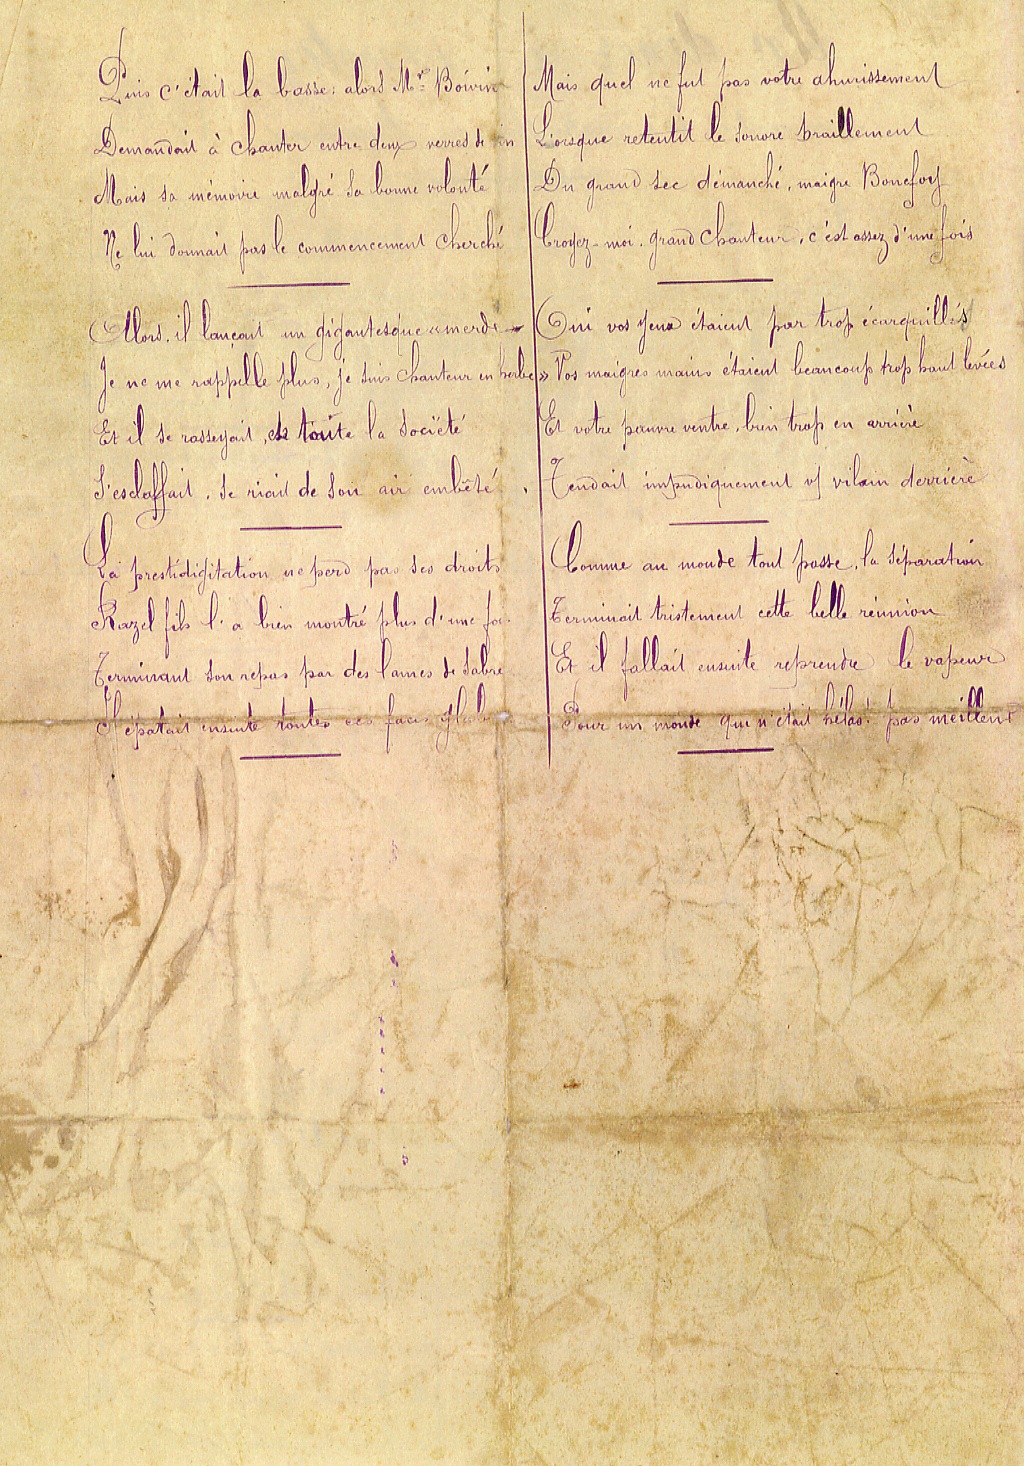 Puis c'était la basse; alors Mr Boivin
Demandait à chanter entre deux verres de vin
Mais sa mémoire malgré sa bonne volonté
Ne lui donnait pas le commencement cherché
Alors, il lançait un gigantesque « merde
Je ne me rappelle plus, je suis chanteur en herbe »
Et il se rasseyait, et toute la société
S'esclaffait, se riait de son air embêté.
La prestidigitation ne perd pas ses droits
Razel fils l'a bien montré plus d'une foi
Terminant son repas par des lames de sabre
Il épatait ensuite toutes ces faces
Mais quel ne fut pas votre ahurissement
Lorsque retentit le sonore braillement
Du grand sec démanché, maigre Bonefoy
Croyez-moi, grand chanteur, c'est assez d'une fois
Oui vos yeux étaient par trop écarquillés
Vos maigres mains étaient beaucoup trop haut levées
Et votre pauvre ventre, bien trop en arrière
Tendait impudiquement vf vilain derrière
Comme au monde tout passe, la séparation
Terminait tristement cette belle réunion
Et il fallait ensuite reprendre le vapeur
Pour un monde qui n'était hélas! pas meilleur